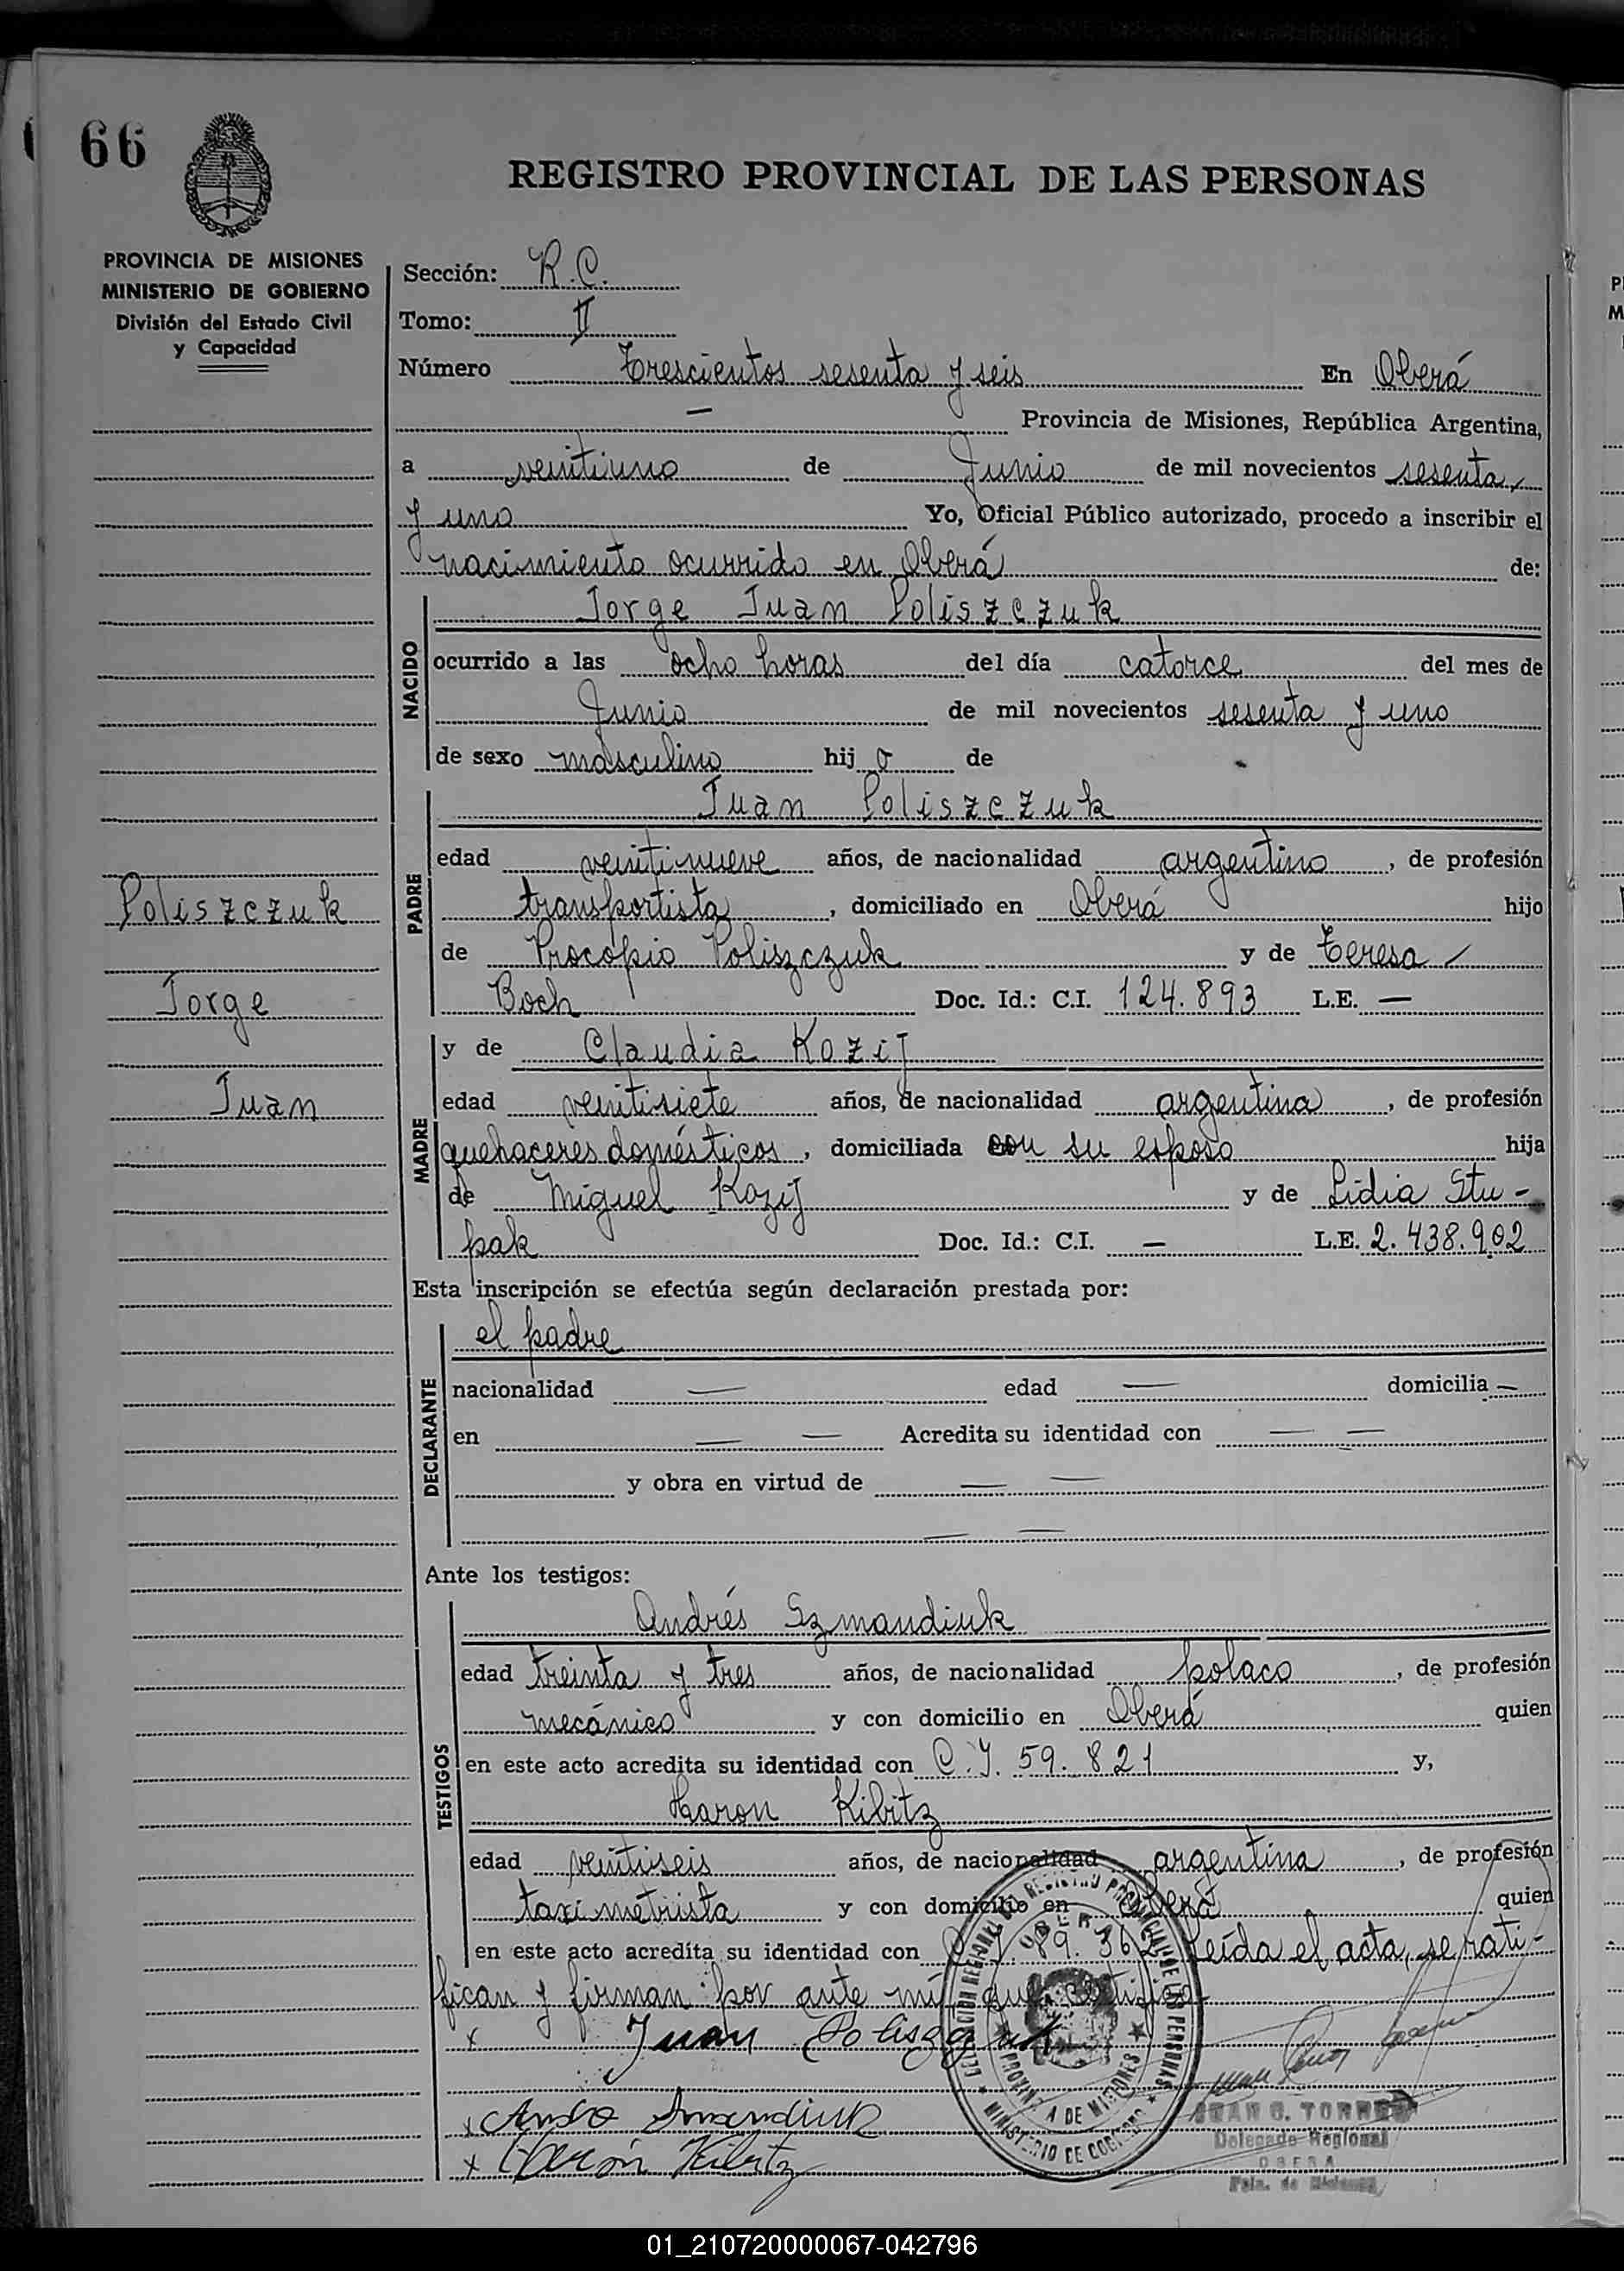 66
REGISTRO PROVINCIAL DE LAS PERSONAS
PROVINCIA DE MISIONES
MINISTERIO DE GOBIERNO
División del Estado Civil
y Capacidad
Sección: R.C.
Tomo: II
Número Trescientos sesenta y seis En Oberá
— Provincia de Misiones, República Argentina,
a veintiuno de Junio de mil novecientos sesenta
y uno Yo, Oficial Público autorizado, procedo a inscribir el
nacimiento ocurrido en Oberá de:
NACIDO
Jorge Juan Poliszczuk
ocurrido a las ocho horas del día catorce del mes de
Junio de mil novecientos sesenta y uno
de sexo masculino hijo de
PADRE
Juan Poliszczuk
edad veintinueve años, de nacionalidad argentino, de profesión
transportista, domiciliado en Oberá hijo
de Procopio Poliszczuk y de Teresa
Boch Doc. Id.: C.I. 124.893 L.E. —
Poliszczuk
Jorge
Juan
MADRE
y de Claudia Kozij
edad veintisiete años, de nacionalidad argentina, de profesión
quehaceres domésticos, domiciliada con su esposo hija
de Miguel Kozij y de Lidia Stu-
pak Doc. Id.: C.I. — L.E. 2.438.902
Esta inscripción se efectúa según declaración prestada por:
DECLARANTE
el padre
nacionalidad — edad — domicilia —
en — — Acredita su identidad con — —
y obra en virtud de — —
— —
Ante los testigos:
TESTIGOS
Andrés Szmandiuk
edad treinta y tres años, de nacionalidad polaco, de profesión
mecánico y con domicilio en Oberá quien
en este acto acredita su identidad con C.I. 59.821 y,
Haron Kibitz
edad veintiseis años, de nacionalidad argentina, de profesión
taximetrista y con domicilio en Oberá quien
en este acto acredita su identidad con 89.362 Leída el acta, se rati-
fican y firman por ante mí que certifico
x Juan Poliszczuk
x Kibitz
JUAN C. TORRES
Delegado Regional
OBERA
Pcia. de Misiones
DELEGACION REGIONAL DEL REGISTRO PROVINCIAL DE LAS PERSONAS
OBERA
PROVINCIA DE MISIONES
MINISTERIO DE GOBIERNO
01_210720000067-042796